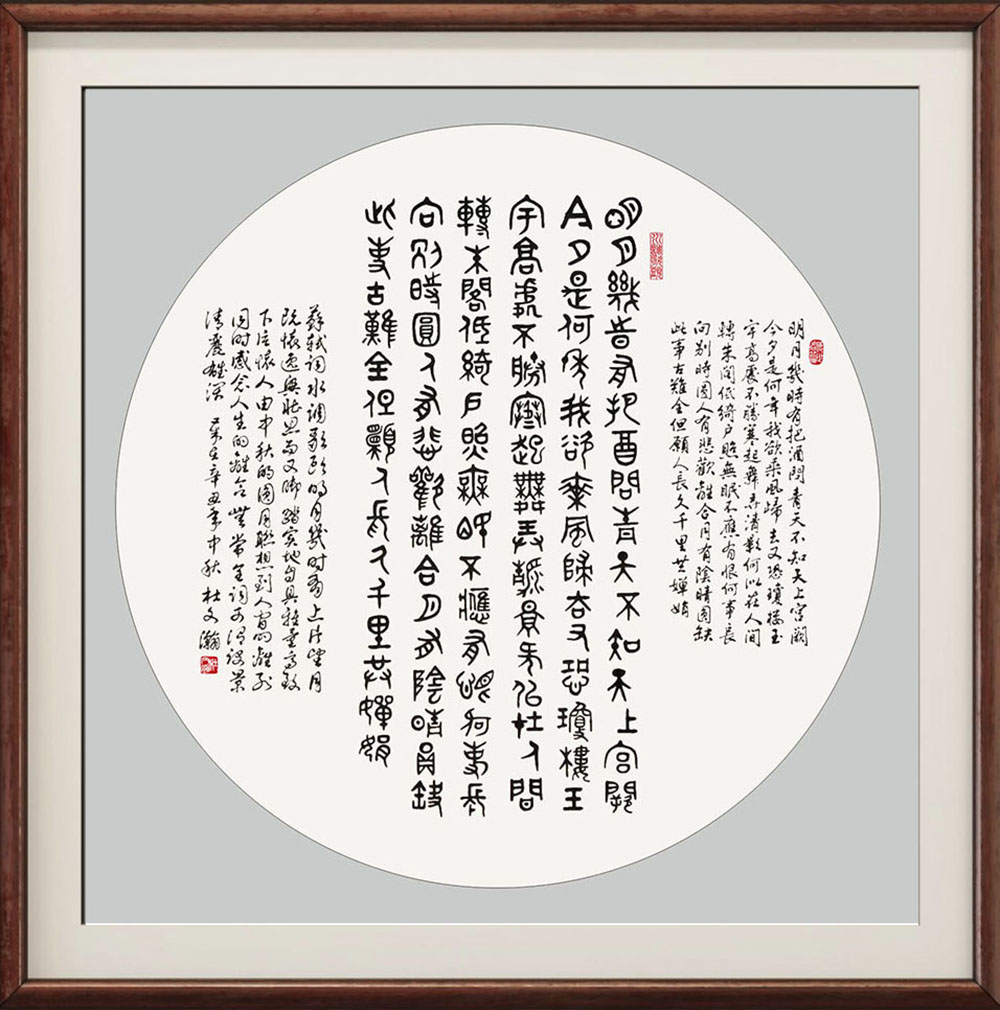 明月幾時有把酒問青天不知天上宮闕
今夕是何年我欲乘風歸去又恐瓊樓玉
宇高處不勝寒起舞弄清影何似在人間
轉朱閣低綺戶照無眠不應有恨何事長
向别時圓人有悲歡離合月有陰晴圓缺
此事古難全但願人長久千里共嬋娟
明月幾時有把酒問青天不知天上宮闕
今夕是何年我欲乘風歸去又恐瓊樓玉
宇高處不勝寒起舞弄清影何似在人間
轉朱閣低綺戶照無眠不應有恨何事長
向别時圓人有悲歡離合月有陰晴員缺
此事古難全但願人長久千里共嬋娟
蘇軾詞水調歌頭明月幾时有上片望月
既懷逸興壯思而又脚踏实地自具雅量高致
下片懷人由中秋的圓月联想到人间的離别
同时感念人生的離合無常全词可谓设景
清麗雄深 辛丑年中秋 杜文瀚